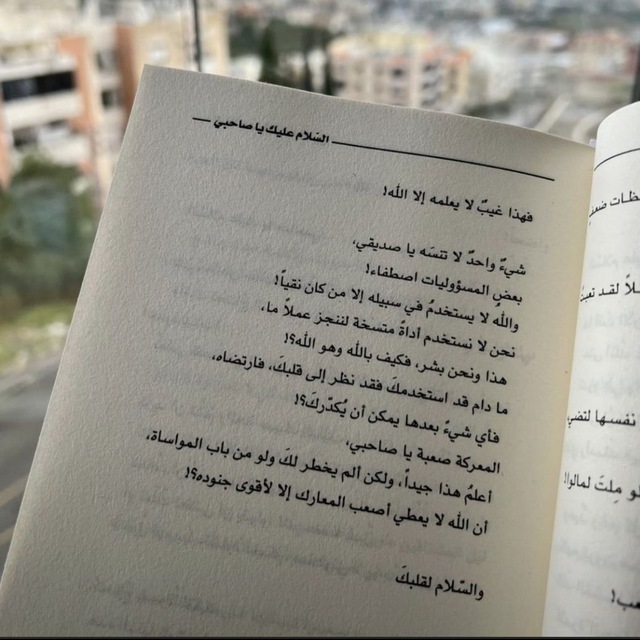 السّلام عليك يا صاحبي
فهذا غيبٌ لا يعلمه إلا الله!
شيءٌ واحدٌ لا تنسَه يا صديقي،
بعض المسؤوليات اصطفاء!
واللهُ لا يستخدمُ في سبيله إلا من كان نقياً!
نحن لا نستخدم أداةً متسخة لننجز عملاً ما،
هذا ونحن بشر، فكيف بالله وهو الله؟!
ما دام قد استخدمكَ فقد نظر إلى قلبكَ، فارتضاه،
فأي شيءٌ بعدها يمكن أن يُكدّركَ؟!
المعركة صعبة يا صاحبي،
أعلمُ هذا جيداً، ولكن ألم يخطر لكَ ولو من باب المواساة،
أن الله لا يعطي أصعب المعارك إلا لأقوى جنوده؟!
والسّلام لقلبكَ
نفسها لتضي
لو مِلتَ لمالوا!